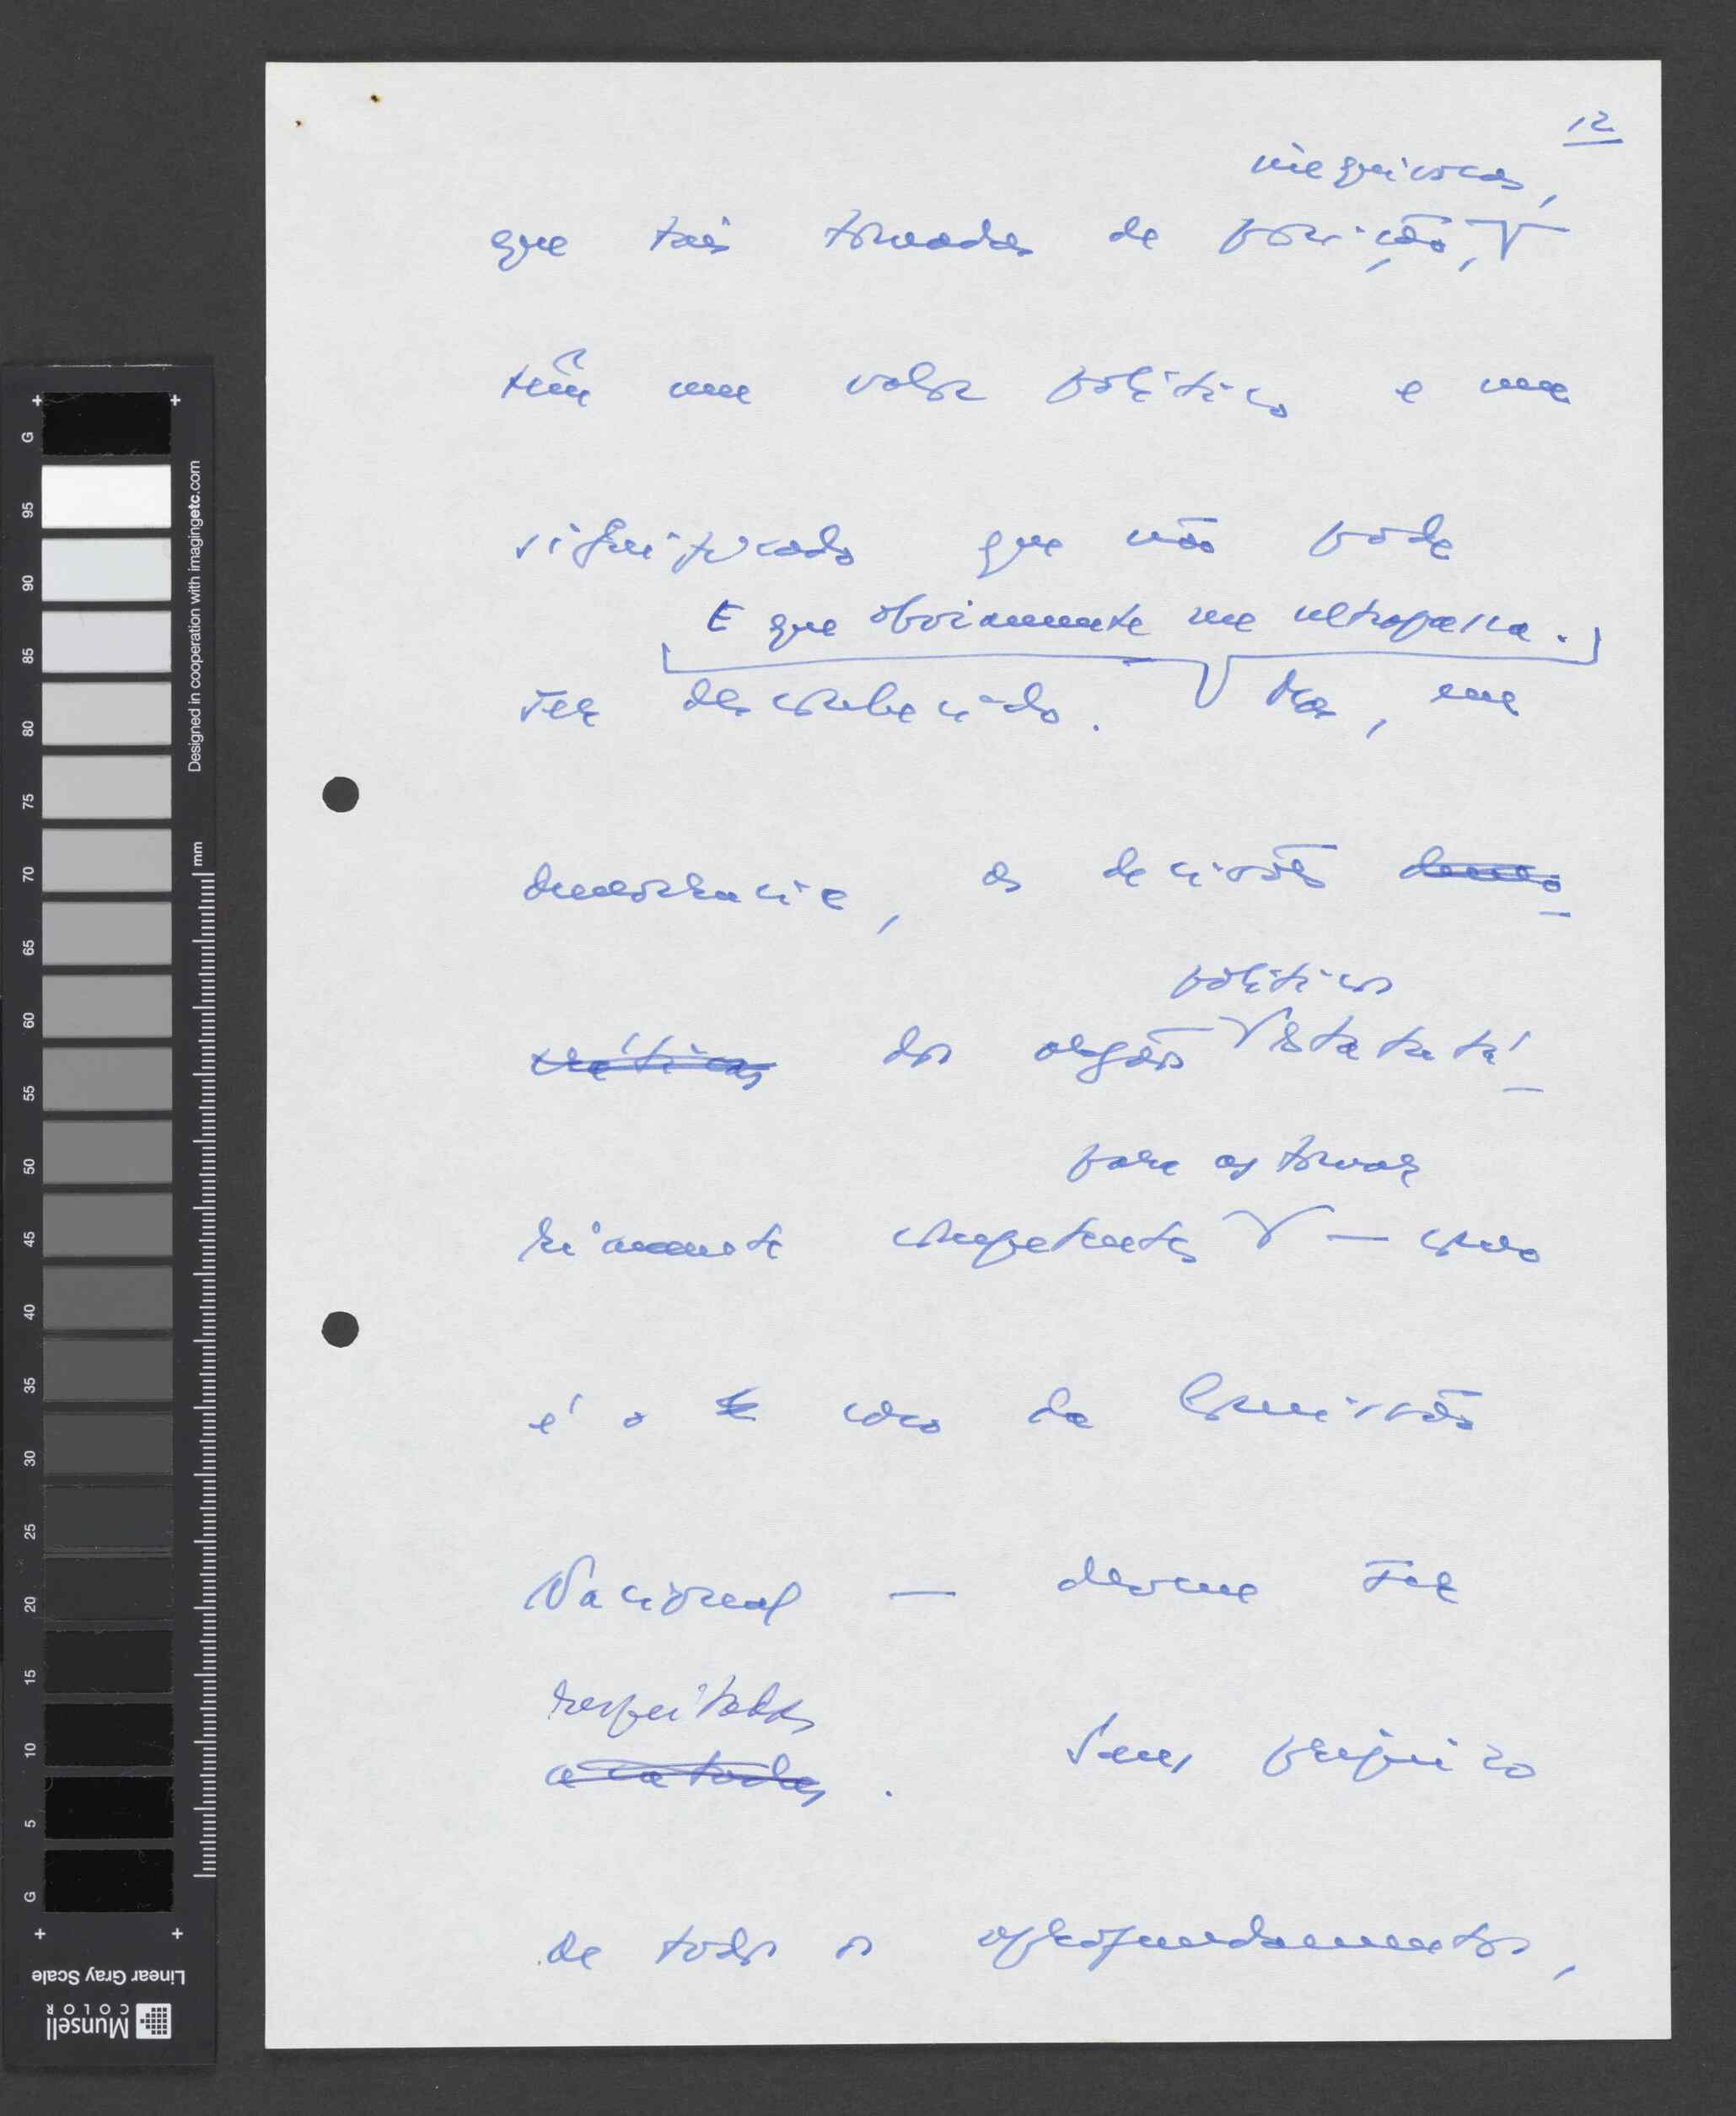 12
inequívocas,
que tais tomadas de posição,
têm um valor político e um
significado que não pode
E que obviamente me ultrapassa.
ser desconhecido. Mas, em
democracia, as decisões demo-
políticos
cráticas dos orgãos estatutá-
para as tomar
riamente competentes — como
é o caso da Comissão
Nacional — devem ser
respeitadas
acatadas. Sem prejuizo
de todos os aprofundamentos,
G
95
90
85
80
75
70
65
60
55
50
45
40
35
30
25
20
15
10
5
G
mm
Designed in cooperation with imagingetc.com
Linear Gray Scale
Munsell
COLOR